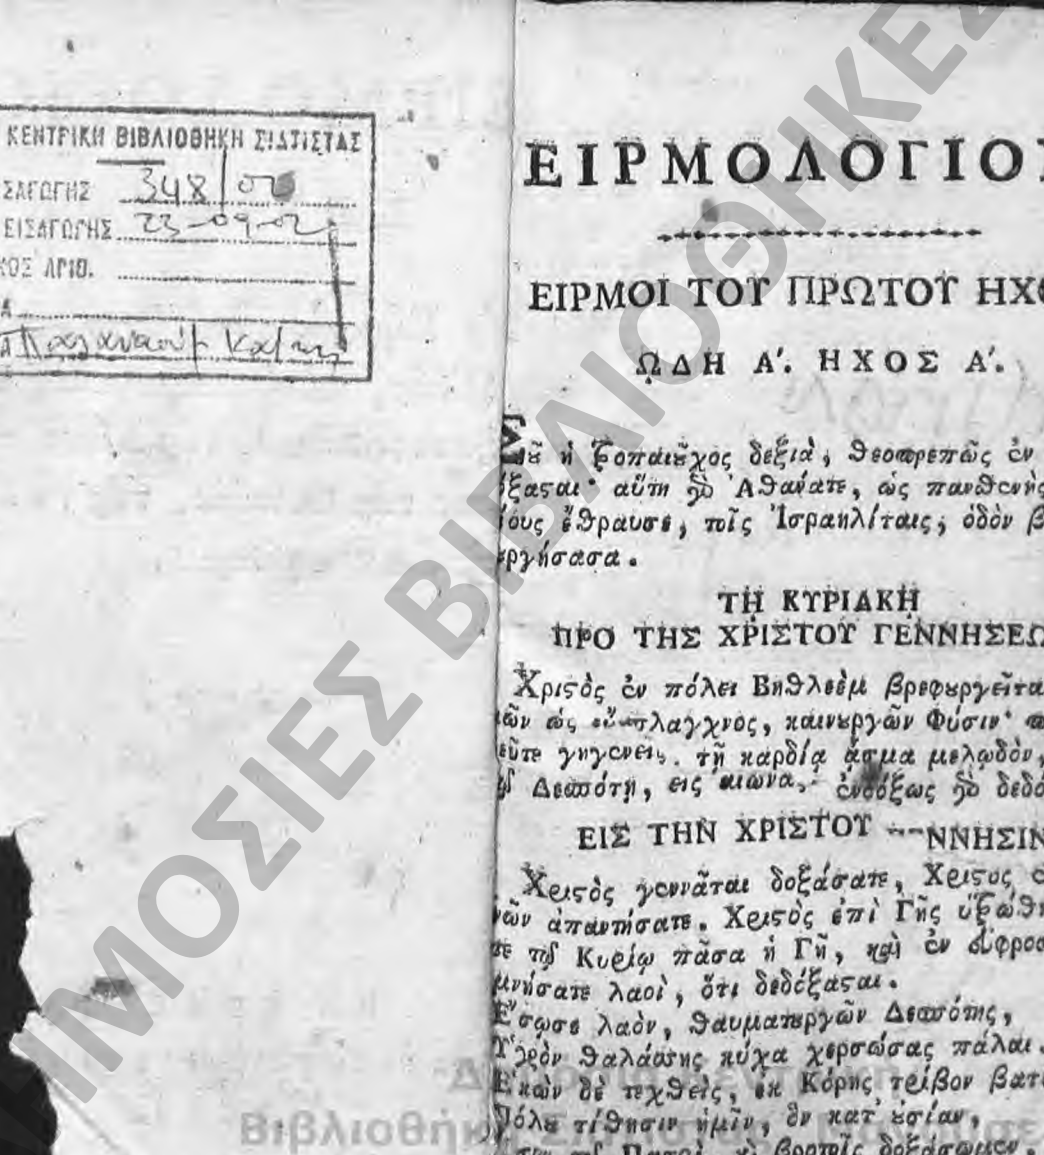 ΚΕΝΤΡΙΚΗ ΒΙΒΛΙΟΘΗΚΗ ΣΙΑΤΙΣΤΑΣ
ΣΑΓΩΓΗΣ 348/02
ΕΙΣΑΓΩΓΗΣ 23-09-02
ΚΟΣ ΑΡΙΘ.
ΕΙΡΜΟΛΟΓΙΟΝ
ΕΙΡΜΟΙ ΤΟΥ ΠΡΩΤΟΥ ΗΧΟ
ΩΔΗ Α'. ΗΧΟΣ Α'.
Σȣ ἡ Τροπαιȣχος δεξιὰ, θεοπρεπῶς ἐν
ξασαι· αὕτη γὸ Ἀθάνατε, ὡς πανθενὴς
ους ἔθραυσε, τοῖς Ἰσραηλίταις, ὁδὸν β
ργήσασα.
ΤΗ ΚΥΡΙΑΚΗ
ΠΡΟ ΤΗΣ ΧΡΙΣΤΟΥ ΓΕΝΝΗΣΕΩ
Χριϛὸς ἐν πόλει Βηθλεὲμ βρεφȣργεῖτα
ῶν ὡς εὔσπλαγχνος, καινȣργῶν Φύσιν·
εῦτε γηγενεῖς, τῇ καρδίᾳ ᾆσμα μελῳδὸν,
Δεσπότῃ, εἰς αἰῶνα, ἐνδόξως γὸ δεδό
ΕΙΣ ΤΗΝ ΧΡΙΣΤΟΥ ΝΝΗΣΙΝ
Χριϛὸς γεννᾶται δοξάσατε, Χριϛος ἐ
νῶν ἀπαντήσατε. Χριϛὸς ἐπὶ Γῆς ὑψώθη
τε τῷ Κυρίῳ πᾶσα ἡ Γῆ, καὶ ἐν εὐφροσ
μνήσατε λαοὶ, ὅτι δεδόξαϛαι.
Ἔσωσε λαὸν, θαυματȣργῶν Δεσπότης,
Ὑγρὸν θαλάσσης κύμα χερσώσας πάλαι.
Ἑκὼν δὲ τεχθεὶς, ἐκ Κόρης τρίβον βατὴ
Πόλȣ τίθησιν ἡμῖν, ὃν κατ' ȣσίαν,
Πατρὶ, καὶ βροτοῖς δοξάσωμεν.
ΔΗΜΟΣΙΕΣ ΒΙΒΛΙΟΘΗΚΕΣ